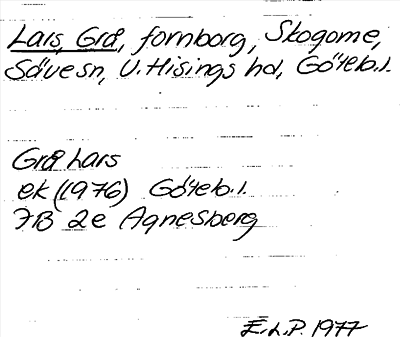 Lars, Grå, fornborg, Skogome,
Säve sn, V. Hisings hd, Göteb. l.
Grå Lars
ek (1976) Göteb. l.
7B 2e Agnesberg
E.L.P. 1977